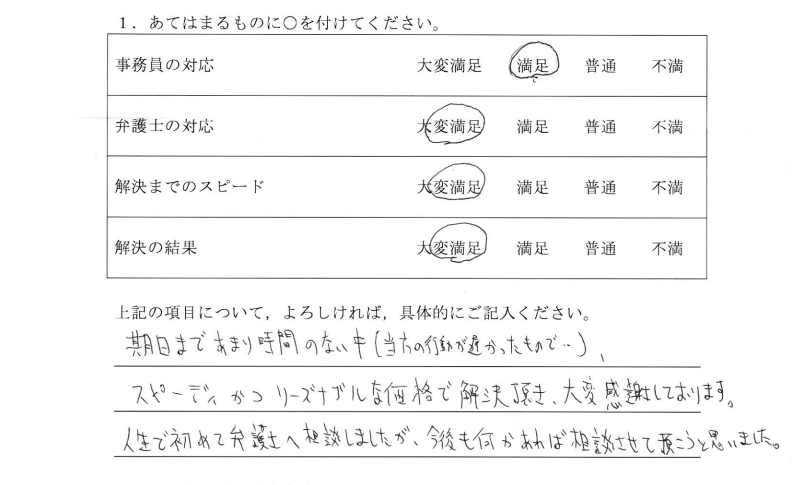 1．あてはまるものに○を付けてください。
事務員の対応 大変満足 満足 普通 不満
弁護士の対応 大変満足 満足 普通 不満
解決までのスピード 大変満足 満足 普通 不満
解決の結果 大変満足 満足 普通 不満
上記の項目について，よろしければ，具体的にご記入ください。
期日まであまり時間のない中(当方の行動が遅かったもので‥)、
スピーディかつリーズナブルな価格で解決頂き、大変感謝しております。
人生で初めて弁護士へ相談しましたが、今後も何かあれば相談させて頂こうと思いました。